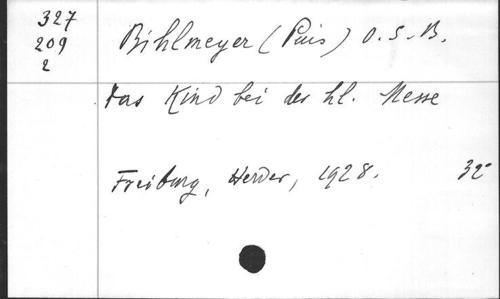 327
209
2
Bihlmeyer (Pius) O.S.B.
Das Kind bei der hl. Messe
Freiburg, Herder, 1928. 32°